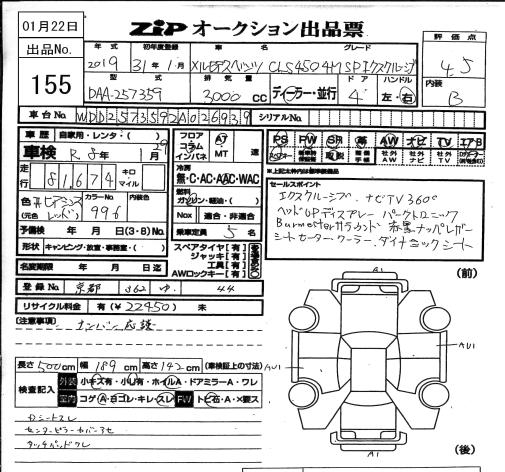 01月22日
ZIP オークション出品票
出品No.
155
年式 初年度登録 車名 グレード
2019 31年1月 メルセデスベンツ CLS450 4M SPエクスクルーシブ
評価点
4.5
型式 排気量 ドア ハンドル
DAA-257359 3000cc ディーラー・並行 4 左・右
内装
B
車台No. WDD2573592A026939 シリアルNo.
車歴 自家用・レンタ・( )
車検 R8年1月29
走行 81,674 キロ マイル
色 (元色 レッド) カラーNo. 996 内装色
予備検 年 月 日(3・8)No.
形状 キャンピング・放室・事務室・( )
名変期限 年 月 日迄
登録No. 京都 362 ゆ 44
リサイクル料金 有(¥22450) 未
フロア コラム インパネ AT MT 速
冷房
無・C・AC・AAC・WAC
燃料
ガソリン・軽油・( )
Nox 適合・非適合
乗車定員 5名
スペアタイヤ[有]
ジャッキ[有]
工具[有]
AWロックキー[有]
PS PW SR 革 AW ナビ TV エアB
セールスポイント
エクスクルーシブ、ナビTV360°
ヘッドUPディスプレー パークトロニック
Burmesterサラウンド 赤黒ナッパレザー
シートヒーター・クーラー、ダイナミックシート
[注意事項] ナンバー応談
長さ500cm 幅189cm 高さ142cm (車検証上の寸法)
検査記入 外装 小キズ有・小U有・ホイルA・ドアミラーA・ワレ
室内 コゲA・ヨゴレ・キレ・スレ FW トビ石・A・X要ス
Dシートスレ
センターピラーカバーヨセ
タッチパッドワレ
(前)
A1
AU1
AU1
A1
(後)